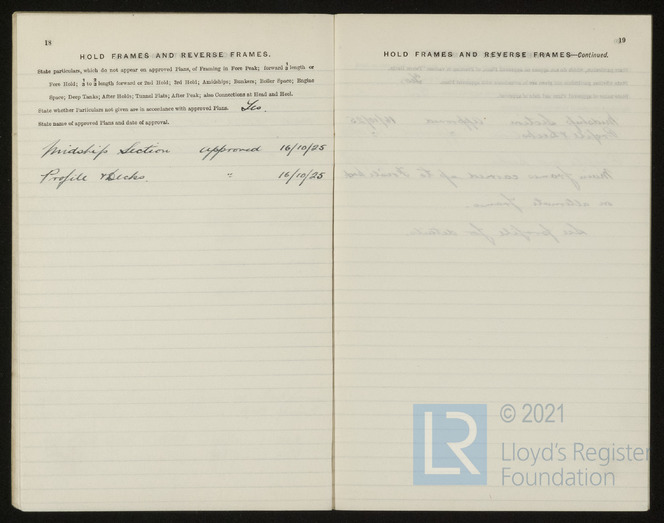 18
HOLD FRAMES AND REVERSE FRAMES.
State particulars, which do not appear on approved Plans, of Framing in Fore Peak; forward 1/5 length or
Fore Hold; 1/5 to length forward or 2nd Hold; 3rd Hold; Amidships; Bunkers; Boiler Space; Engine
Space; Deep Tanks; After Holds; Tunnel Flats; After Peak; also Connections at Head and Heel.
State whether Particulars not given are in accordance with approved Plans. Yes.
State name of approved Plans and date of approval.
Midship Section approved 16/10/25
Profile & Decks. " 16/10/25
19
HOLD FRAMES AND REVERSE FRAMES—Continued.
LR
© 2021
Lloyd's Register
Foundation